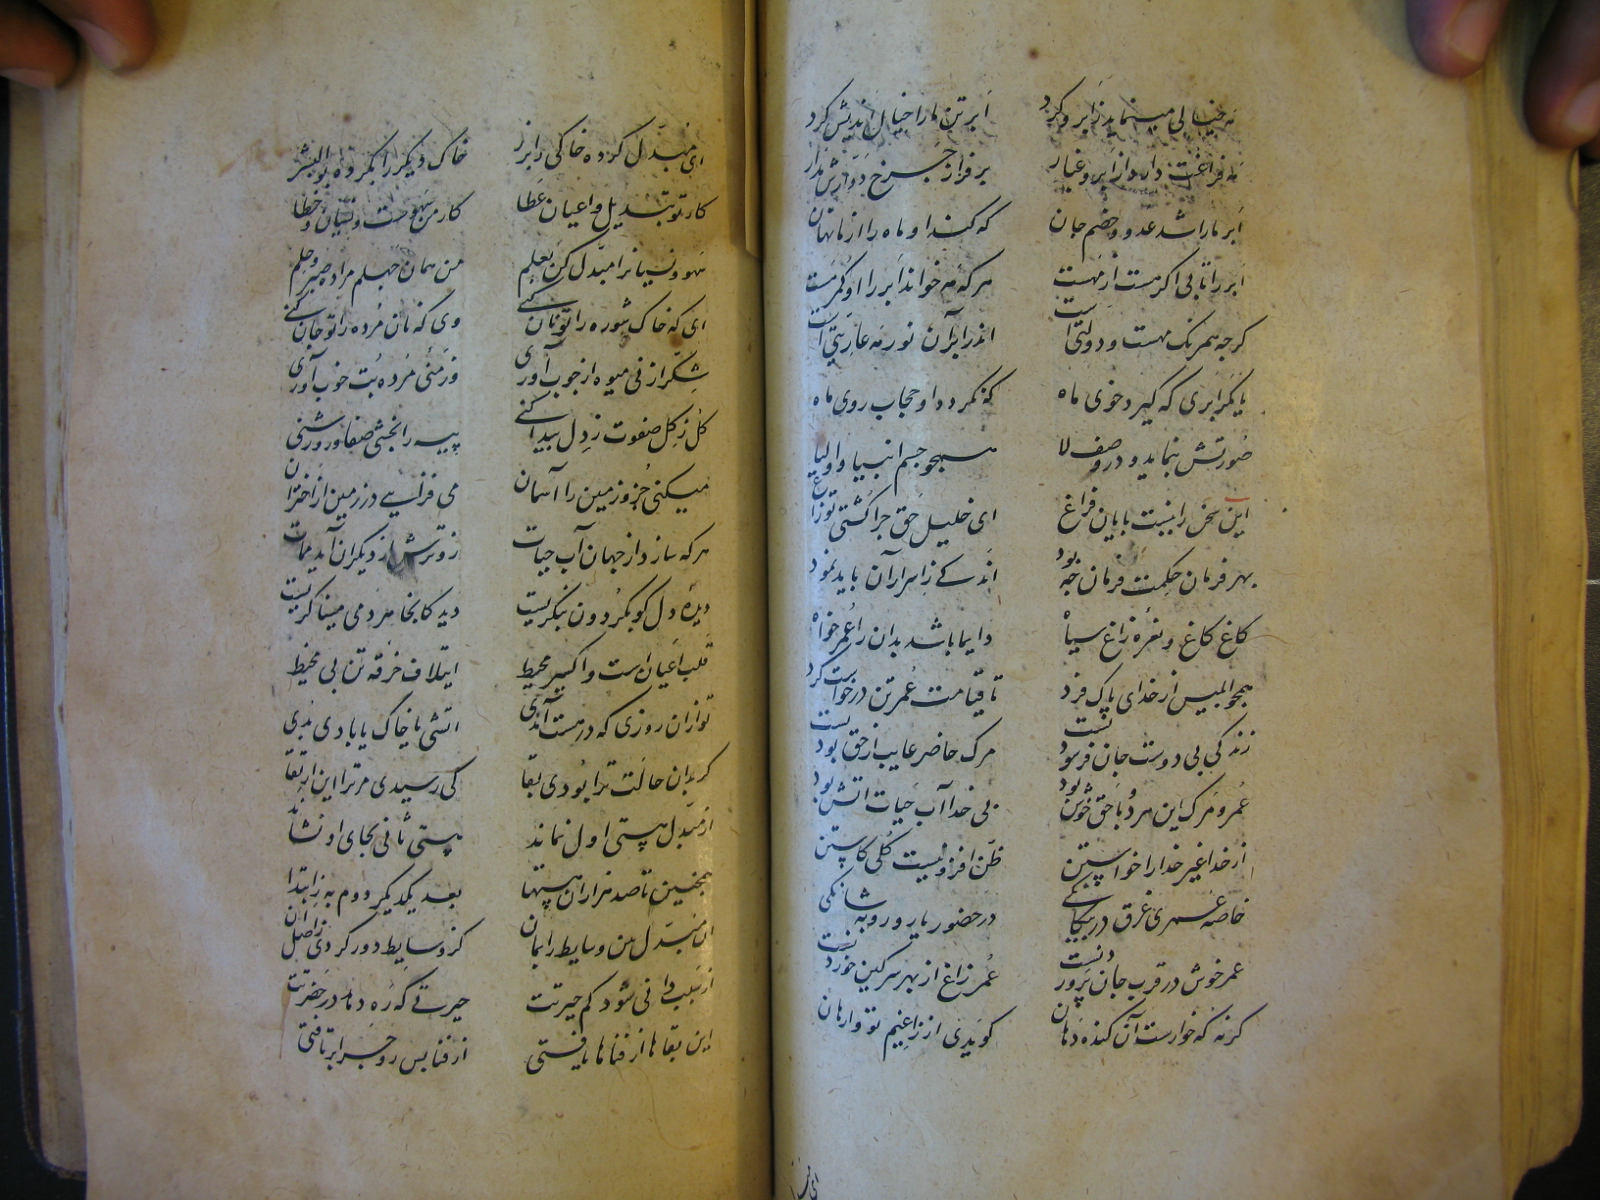 مه خیالی مینماید ز ابر و گرد ابر تن ما را خیال اندیش کرد
مه فراغت دارد از ابر و غبار بر فراز چرخ دارد مه مدار
ابر ما را شد عدو و خصم جان که کند او ماه را از ما نهان
ابر را تابی اگر هست از مهست هر که مه خواند ابر را او گمرهست
گرچه همرنک مهست و دولتی است اندر ابر آن نور مه عاریتی است
یا مگر ابری که گیرد خوی ماه که نگردد او حجاب روی ماه
صورتش بنماید و در وصف لا همچو جسم انبیا و اولیا
این سخن را نیست پایان فراغ ای خلیل حق چرا کشتی تو زاغ
بهر فرمان حکمت فرمان چه بود اندکی ز اسرار آن باید نمود
کاغ کاغ و نعره زاغ سیاه دایما باشد بدان را عمر خواه
همچو ابلیس از خدای پاک فرد تا قیامت عمر تن درخواست کرد
زندکی بی دوست جان فرسودنست مرک حاضر غایب از حق بودنست
عمر و مرک این هر دو با حق خوش بود بی خدا آب حیات اتش بود
از خدا غیر خدا را خواستن ظن افزونیست کلی کاستن
خاصه عمری غرق در بیکانکی در حضور یار و روبه شانکی
عمر خوش در قرب جان پروردنست عمر زاغ از بهر سرکین خوردنست
کرنه که خوارست آن کنده دهان کویدی از زاغیم تو وارهان
ای مبدل
ای مبدل کرده خاکی را بزر خاک دیکر را بکرده بوالبشر
کار تو تبدیل و اعیان عطا کار من سهوست و نسیان و خطا
سهو و نسیانرا مبدل کن بعلم من همان جهلم مرا ده صبر و حلم
ای که خاک شوره را تو نان کنی وی که نان مرده را تو جان کنی
شکر از نی میوه از چوب آوری وز منی مرده بت خوب آوری
کل ز کل صفوت ز دل پیدا کنی پیه را بخشی صفا و روشنی
میکنی جزو زمین را آسمان می فزایی در زمین از اختران
هر که سازد از جهان آب حیات زوترش از دیکران آید ممات
دیده دل کو بکردون بنکریست دید کاینجا هر دمی میناکریست
قلب اعیان است و اکسیر محیط ایتلاف خرقه تن بی مخیط
تو ازان روزی که در هست آمدی اتشی یا خاک یا بادی بدی
کر بدان حالت ترا بودی بقا کی رسیدی مر ترا این ارتقا
از مبدل هستی اول نماند هستی ثانی بجای او نشاند
همچنین تا صد هزاران هستها بعد یکدیکر دوم به ز ابتدا
آن مبدل بین وسایط را بمان کز وسایط دور کردی ز اصل آن
از سبب دانی شود کم حیرتت حیرتی که ره دهد در حضرتت
این بقاها از فناها یافتی از فنا پس رو چرا برتافتی